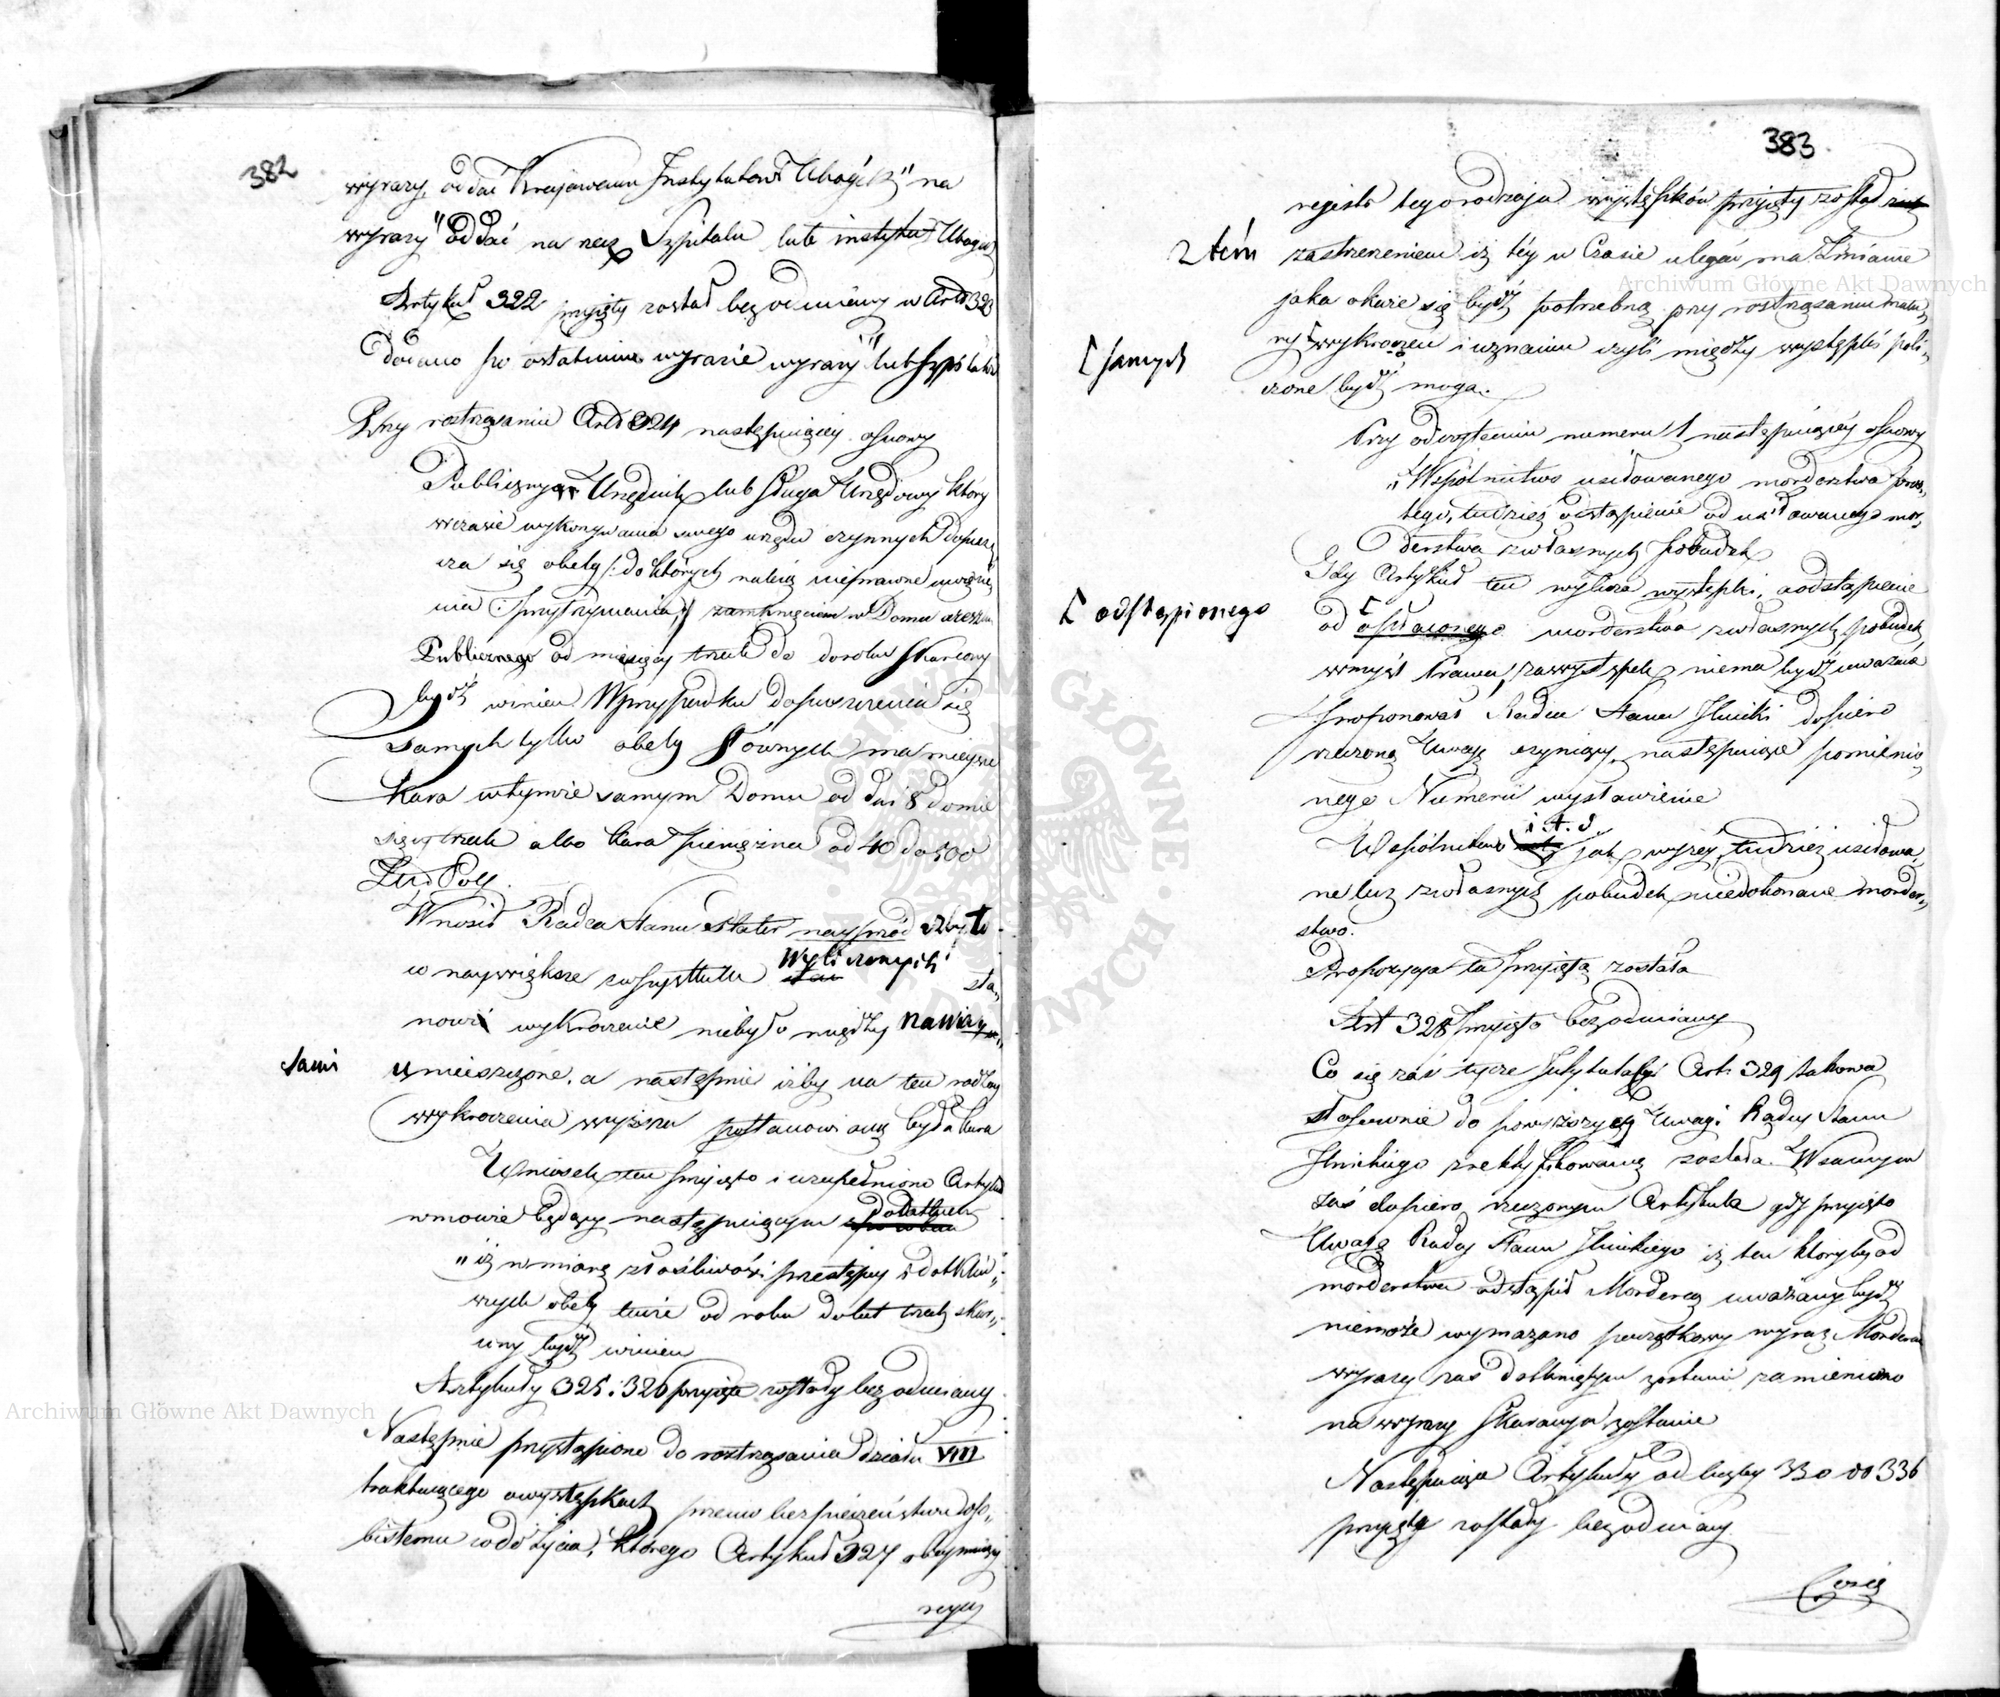 382
wyrazy, oddać Krajowemu Instytutowi Ubogich" na
wyrazy "oddać na rzecz Szpitalu lub instytut Ubogich
Artykuł 322 przyięty został bez odmiany w Art 323
dodano po ostatnim wyrazie wyrazy "lub Szpitalu
Przy roztrząsaniu Art 324 następuiącey osnowy
Publiczny Urzędnik lub Sługa Urzędowy który
wczasie wykonywania swego urzędu czynnych dopusz
cza się obelg /:do których należą nieprawne uwięzie
nia i przytrzymania:/ zamknięciem w Domu aresztu
Publicznego od miesięcy trzech do dwóch skarcony
bydź winien Wprzypadku dopuszczenia się
samych tylko obelg słownych ma mieysce
kara wtymże samym Domu od dni 8 do mie
sięcy trzech albo kara pieniężna od 40 do 500
Złt Pols.
Wnosił Radca Stanu naypród ażby to
w naywiększe Wyliczonych sta„
nowi wykroczenie niebyło między nawiązk
samo umieszczone, a następnie iżby na ten rodzay
wykroczenia wyższa postanowioną była kara
Wniosek ten przyięto i uzupełniono Artykuł
wmowie będący następuiącym dodatkiem
„iż w miarę złośliwości przestępcy i dotkliw„
wych obelg, tenże od roku do lat trzech skar„
cony bydź winien
Artykuły 325 i 326 przyięte zostały bez odmiany
Następnie przystąpiono do roztrząsania działu VIII
traktuiącego o występkach przeciw bezpieczeństwu oso„
bistemu co do życia, którego Artykuł 327 obeymuiący
reges
383
regestr tego rodzaju występków przyięty został
z tém zastrzeżeniem iż téy w Czasie ulegać ma Zmianie
jaka okaże się bydź potrzebną przy roztrząsaniu mate„
ryi [ wykroczeń i uznaniu czyli między występki poli„
[ samych
czone bydź mogą.
Przy odczytaniu numeru 1 następuiącéy osnowy
„Wspólnictwo usiłowanego morderstwa pros„
tego, tudzież odstąpienie od usiłowanego mor„
derstwa z własnych pobudek
Gdy Artykuł ten wylicza występki, a odstąpienie
[ odstąpionego
od [ morderstwa z własnych pobudek,
wmyśl Prawa, za występek niema bydź uważane
proponował Radca Stanu Ilnicki dopiero
rzeczoną Uwagę czyniący, następuiące pomienio„
nego Numeru wystawienie
Wspólnictwo i.t.d. jak wyżéy, tudzież usiłowa„
ne lecz z własnych pobudek niedokonane morder„
stwo.
Propozycya ta przyiętą została
Art 328 przyięto bez odmiany
Co się zaś tycze Intytulacyi Art. 329 takowa
stosownie do powyższey Uwagi Radcy Stanu
Ilnickiego zrektyfikowaną została. Wsamym
zaś dopiero rzeczonym Artykule gdy przyięto
Uwagę Radcy Stanu Ilnickiego iż ten któryby od
morderstwa odstąpił Mordercą uważany bydź
niemoże wymazano początkowy wyraz Morderca
wyrazy zaś dotkniętym zostanie zamieniono
na wyrazy skaranym zostanie
Następuiące Artykuły od liczby 330 do 336
przyięte zostały bez odmiany.
Co się
Archiwum Główne Akt Dawnych
Archiwum Główne Akt Dawnych
ARCHIWUM GŁÓWNE AKT DAWNYCH